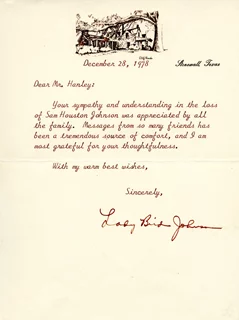 December 28, 1978
Stonewall, Texas
Dear Mr. Hanley:
Your sympathy and understanding in the loss
of Sam Houston Johnson was appreciated by all
the family. Messages from so many friends has
been a tremendous source of comfort, and I am
most grateful for your thoughtfulness.
With my warm best wishes,
Sincerely,
Lady Bird Johnson